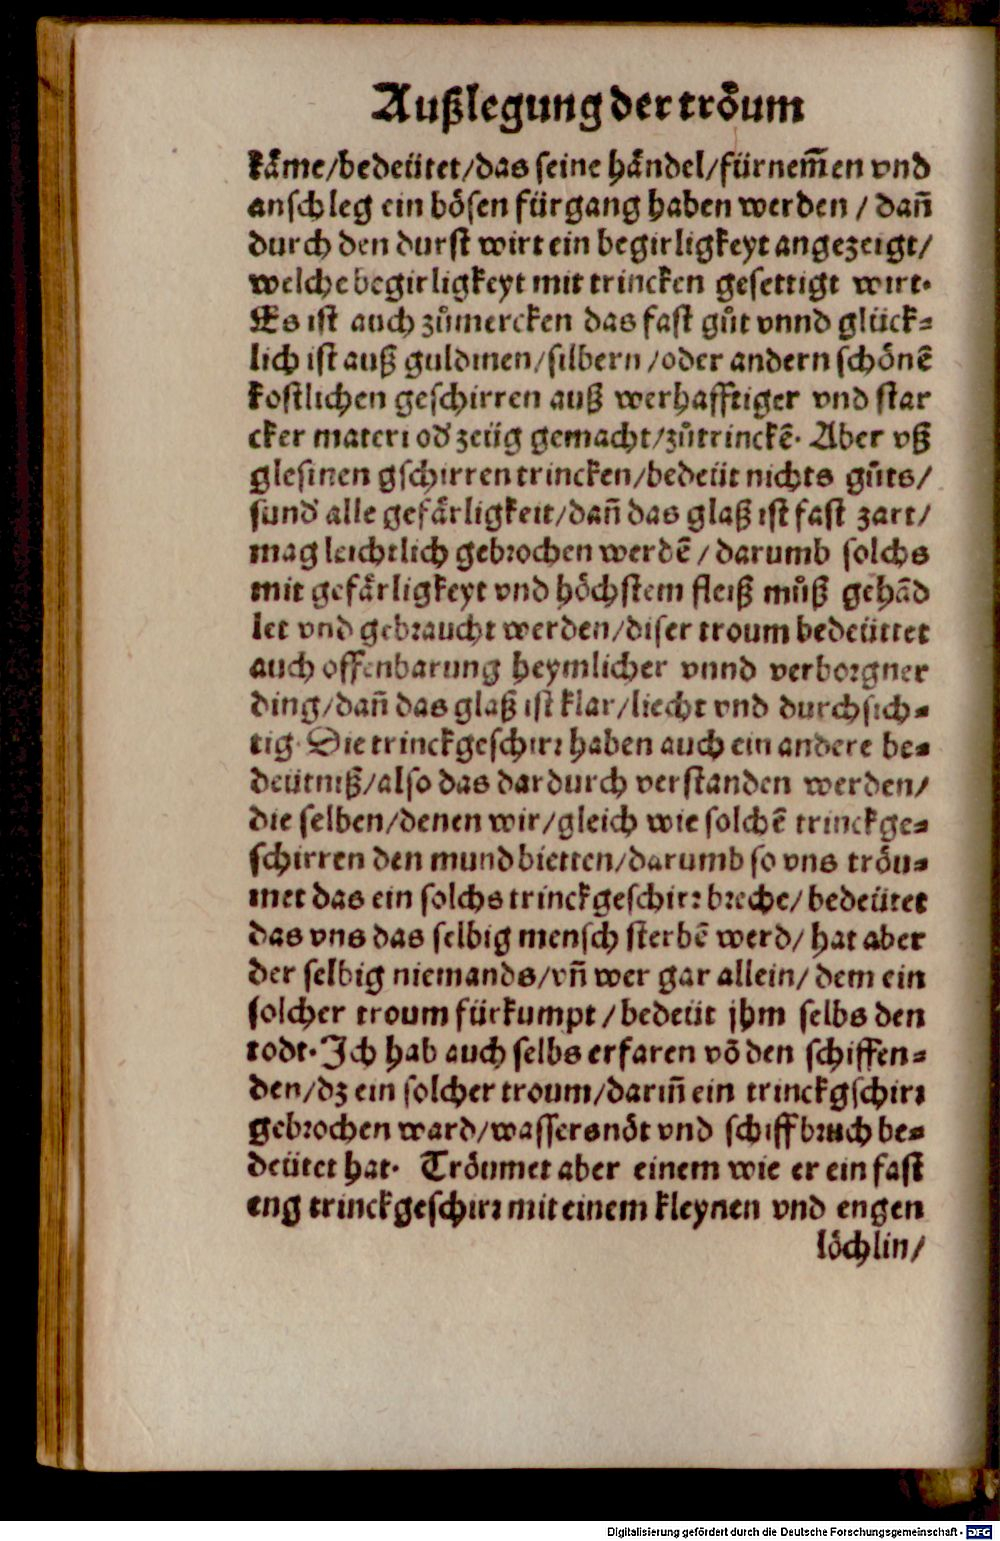 Außlegung der troͤum
kaͤme/bedeütet/das seine haͤndel/fürnem̃en vnd
anschleg ein boͤsen fürgang haben werden / dañ
durch den durst wirt ein begirligkeyt angezeigt/
welche begirligkeyt mit trincken gesettigt wirt.
Es ist auch zuͦmercken das fast guͦt vnnd glück⸗
lich ist auß guldinen/silbern /oder andern schoͤnẽ
kostlichen geschirren auß werhafftiger vnd star
cker materi od' zeüg gemacht/zuͦtrinckẽ. Aber vß
glesinen gschirren trincken/bedeüt nichts guͦts/
sund' alle gefaͤrligkeit/dañ das glaß ist fast zart/
mag leichtlich gebrochen werdẽ / darumb solchs
mit gefaͤrligkeyt vnd hoͤchstem fleiß muͦß gehãd
let vnd gebraucht werden/diser troum bedeüttet
auch offenbarung heymlicher vnnd verborgner
ding/dañ das glaß ist klar/liecht vnd durchsich⸗
tig. Die trinckgeschirr haben auch ein andere be⸗
deütniß/also das dardurch verstanden werden/
die selben/denen wir/gleich wie solchẽ trinckge⸗
schirren den mund bietten/darumb so vns troͤu⸗
met das ein solchs trinckgeschirr breche/bedeütet
das vns das selbig mensch sterbẽ werd/ hat aber
der selbig niemands/vñ wer gar allein/ dem ein
solcher troum fürkumpt / bedeüt jhm selbs den
todt. Jch hab auch selbs erfaren võ den schiffen⸗
den/dz ein solcher troum/dariñ ein trinckgschirr
gebrochen ward/wassersnoͤt vnd schiffbruch be⸗
deütet hat. Troͤumet aber einem wie er ein fast
eng trinckgeschirr mit einem kleynen vnd engen
loͤchlin/
Digitalisierung gefördert durch die Deutsche Forschungsgemeinschaft - DFG